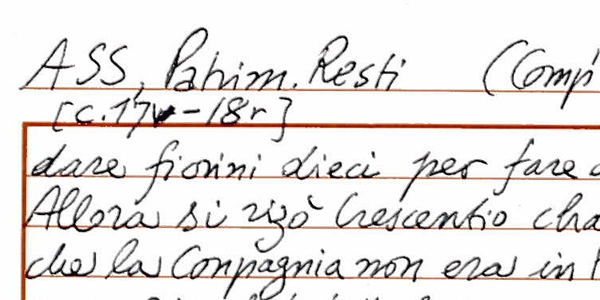 ASS, Patrim. Resti (Comp
[c.17v-18r]
dare fiorini dieci per fare
Allora si rizò Crescentio cha
che la Conpagnia non era in